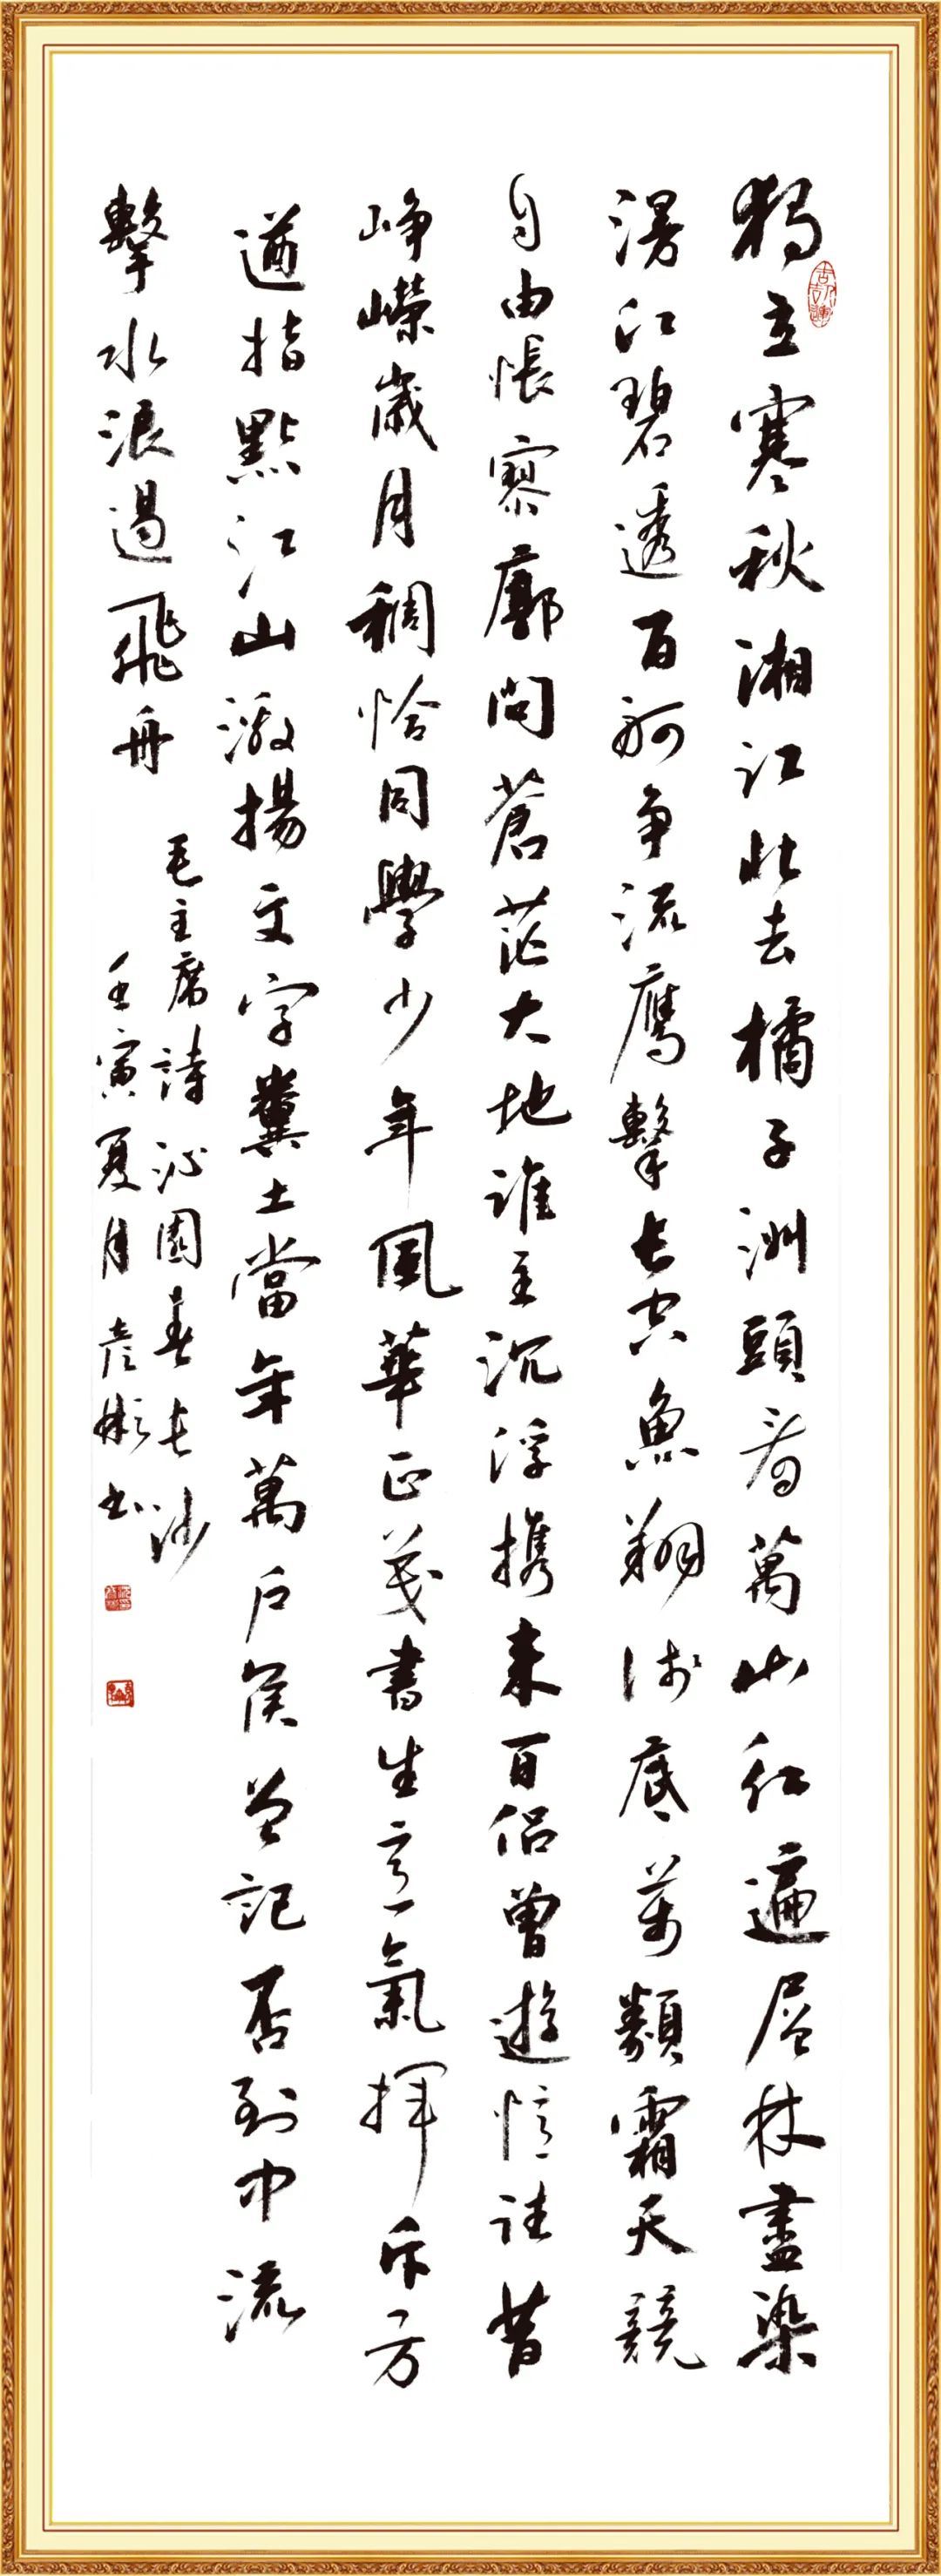 獨立寒秋湘江北去橘子洲頭看萬山紅遍層林盡染
漫江碧透百舸争流鷹擊長空魚翔淺底萬類霜天競
自由悵寥廓問蒼茫大地誰主沉浮携来百侣曾遊憶往昔
崢嶸歲月稠恰同學少年風華正茂書生意氣揮斥方
遒指點江山激揚文字糞土當年萬户侯曾記否到中流
擊水浪遏飛舟
毛主席詩沁園春長沙
壬寅夏月彦彬书